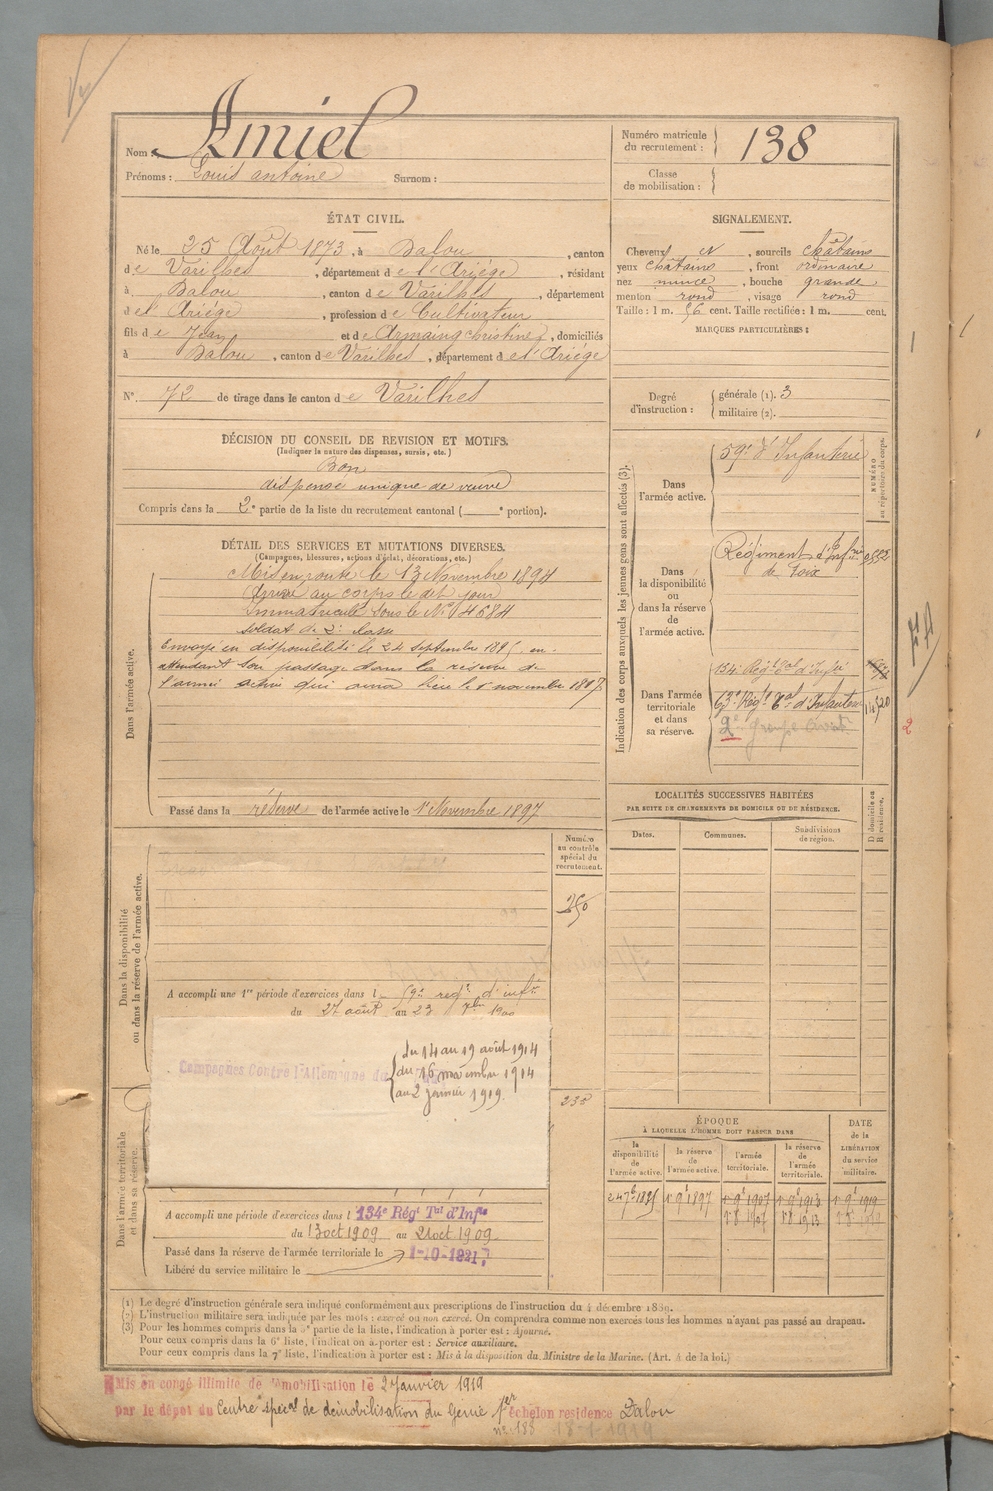 Nom : Amiel
Prénoms : Louis antoine Surnom :
Numéro matricule du recrutement : 138
Classe de mobilisation :
ÉTAT CIVIL.
Né le 25 Août 1873, à Dalou, canton
de Varilhes, département de l'Ariége, résidant
à Dalou, canton de Varilhes, département
de l'Ariége, profession de Cultivateur
fils de Jean et de Armaing Christine, domiciliés
à Dalou, canton de Varilhes, département de l'Ariége
N° 72 de tirage dans le canton de Varilhes
SIGNALEMENT.
Cheveux N, sourcils châtains
yeux châtains, front ordinaire
nez mince, bouche grande
menton rond, visage rond
Taille : 1 m. 56 cent. Taille rectifiée : 1 m. cent.
MARQUES PARTICULIÈRES :
Degré d'instruction : générale (1). 3
militaire (2).
DÉCISION DU CONSEIL DE REVISION ET MOTIFS.
(Indiquer la nature des dispenses, sursis, etc.)
Bon
dispensé unique de veuve
Compris dans la 2e partie de la liste du recrutement cantonal ( e portion).
DÉTAIL DES SERVICES ET MUTATIONS DIVERSES.
(Campagnes, blessures, actions d'éclat, décorations, etc.)
Dans l'armée active.
Mis en route le 13 Novembre 1894
Arrivé au corps le dit jour
Immatriculé sous le N° 4684
soldat de 2e classe
Envoyé en disponibilité le 24 septembre 1895 en
attendant son passage dans la réserve de
l'armée active qui aura lieu le 1er novembre 1897
Passé dans la réserve de l'armée active le 1er Novembre 1897
Indication des corps auxquels les jeunes gens sont affectés (3).
NUMÉRO au répertoire du corps.
Dans l'armée active.
59e d'Infanterie
Dans la disponibilité ou dans la réserve de l'armée active.
Régiment d'Infrie
de Foix
Dans l'armée territoriale et dans sa réserve.
134e Régt Tal d'Infie
63e Régt Tal d'Infanterie
2e Groupe
2
LOCALITÉS SUCCESSIVES HABITÉES
PAR SUITE DE CHANGEMENTS DE DOMICILE OU DE RÉSIDENCE.
Dates. Communes. Subdivisions de région.
D domicile ou R résidence.
Dans la disponibilité ou dans la réserve de l'armée active.
Numéro au contrôle spécial du recrutement.
A accompli une 1re période d'exercices dans l 59e régt d'infie
du 27 août au 23 7bre 1900
Campagnes Contre l'Allemagne du
du 14 au 19 août 1914
du 16 novembre 1914
au 2 janvier 1919
Dans l'armée territoriale et dans sa réserve.
A accompli une période d'exercices dans l 134e Régt Tal d'Infie
du 13 oct 1909 au 21 oct 1909
Passé dans la réserve de l'armée territoriale le 1-10-1921
Libéré du service militaire le
ÉPOQUE
À LAQUELLE L'HOMME DOIT PASSER DANS
la disponibilité de l'armée active.
la réserve de l'armée active.
l'armée territoriale.
la réserve de l'armée territoriale.
DATE de la LIBÉRATION du service militaire.
24 7b 1895 1er 9b 1897 1er 9b 1907 1er 9b 1913 1er 9b 1919
1er 8b 1907 1er 8b 1913 1er 8b 1919
(1) Le degré d'instruction générale sera indiqué conformément aux prescriptions de l'instruction du 4 décembre 1889.
(2) L'instruction militaire sera indiquée par les mots : exercé ou non exercé. On comprendra comme non exercés tous les hommes n'ayant pas passé au drapeau.
(3) Pour les hommes compris dans la 5e partie de la liste, l'indication à porter est : Ajourné.
Pour ceux compris dans la 6e liste, l'indication à porter est : Service auxiliaire.
Pour ceux compris dans la 7e liste, l'indication à porter est : Mis à la disposition du Ministre de la Marine. (Art. 4 de la loi.)
Mis en congé illimité de démobilisation le 2 Janvier 1919
par le dépôt du Centre spécal de démobilisation du Génie 1er échelon residence Dalou
n° 188 18-1-1919